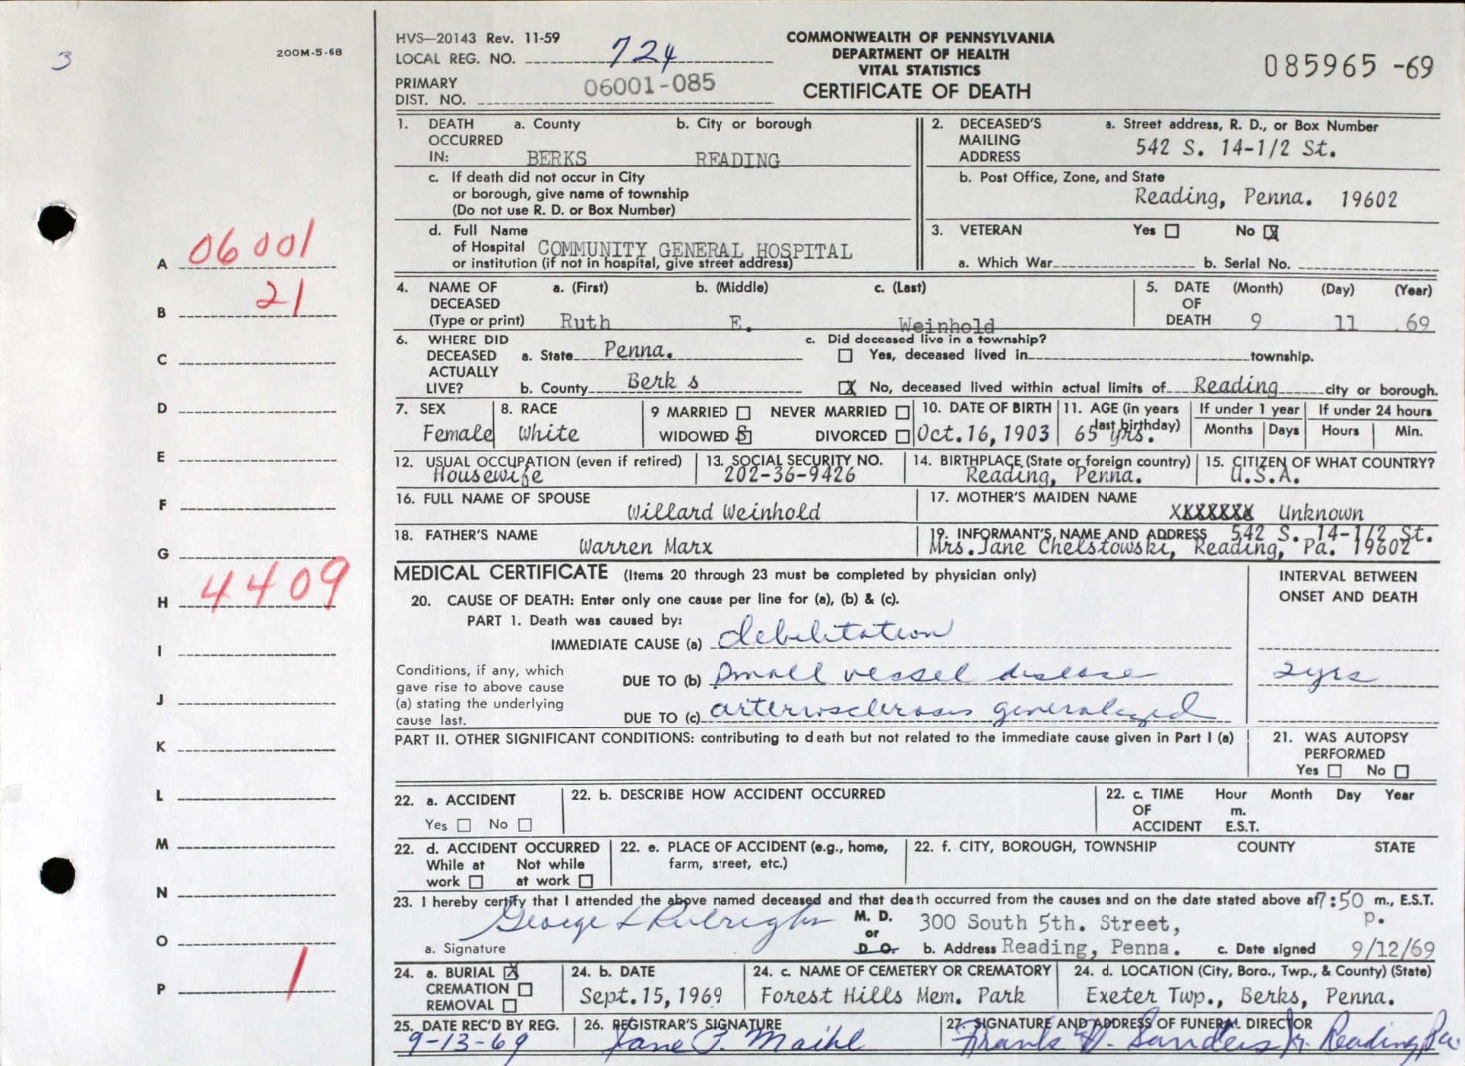 3
200M-5-68
HVS—20143 Rev. 11-59
LOCAL REG. NO. 724
PRIMARY
DIST. NO. 06001-085
COMMONWEALTH OF PENNSYLVANIA
DEPARTMENT OF HEALTH
VITAL STATISTICS
CERTIFICATE OF DEATH
085965 -69
1. DEATH OCCURRED IN: a. County b. City or borough
BERKS READING
c. If death did not occur in City
or borough, give name of township
(Do not use R. D. or Box Number)
d. Full Name
of Hospital COMMUNITY GENERAL HOSPITAL
or institution (if not in hospital, give street address)
2. DECEASED'S MAILING ADDRESS a. Street address, R. D., or Box Number
542 S. 14-1/2 St.
b. Post Office, Zone, and State
Reading, Penna. 19602
3. VETERAN Yes No X
a. Which War b. Serial No.
4. NAME OF DECEASED (Type or print) a. (First) b. (Middle) c. (Last)
Ruth E. Weinhold
5. DATE OF DEATH (Month) (Day) (Year)
9 11 69
6. WHERE DID DECEASED ACTUALLY LIVE? a. State Penna.
b. County Berk s
c. Did deceased live in a township?
Yes, deceased lived in township.
X No, deceased lived within actual limits of Reading city or borough.
7. SEX
Female
8. RACE
White
9 MARRIED NEVER MARRIED
WIDOWED X DIVORCED
10. DATE OF BIRTH
Oct.16,1903
11. AGE (in years last birthday)
65 yrs.
If under 1 year
Months Days
If under 24 hours
Hours Min.
12. USUAL OCCUPATION (even if retired)
Housewife
13. SOCIAL SECURITY NO.
202-36-9426
14. BIRTHPLACE (State or foreign country)
Reading, Penna.
15. CITIZEN OF WHAT COUNTRY?
U.S.A.
16. FULL NAME OF SPOUSE
Willard Weinhold
17. MOTHER'S MAIDEN NAME
XXXXXXX Unknown
18. FATHER'S NAME
Warren Marx
19. INFORMANT'S NAME AND ADDRESS 542 S. 14-1/2 St.
Mrs.Jane Chelstowski, Reading, Pa. 19602
MEDICAL CERTIFICATE (Items 20 through 23 must be completed by physician only)
INTERVAL BETWEEN
ONSET AND DEATH
20. CAUSE OF DEATH: Enter only one cause per line for (a), (b) & (c).
PART 1. Death was caused by:
IMMEDIATE CAUSE (a) debilitation
Conditions, if any, which
gave rise to above cause
(a) stating the underlying
cause last.
DUE TO (b) small vessel disease 2yrs
DUE TO (c) arteriosclerosis generalized
PART II. OTHER SIGNIFICANT CONDITIONS: contributing to death but not related to the immediate cause given in Part I (a)
21. WAS AUTOPSY
PERFORMED
Yes No
22. a. ACCIDENT
Yes No
22. b. DESCRIBE HOW ACCIDENT OCCURRED
22. c. TIME OF ACCIDENT Hour Month Day Year
m.
E.S.T.
22. d. ACCIDENT OCCURRED
While at work Not while at work
22. e. PLACE OF ACCIDENT (e.g., home,
farm, street, etc.)
22. f. CITY, BOROUGH, TOWNSHIP COUNTY STATE
23. I hereby certify that I attended the above named deceased and that death occurred from the causes and on the date stated above at 7:50 m., E.S.T.
p.
George
a. Signature
M. D.
or
D. O.
300 South 5th. Street,
b. Address Reading, Penna. c. Date signed 9/12/69
24. a. BURIAL X
CREMATION
REMOVAL
24. b. DATE
Sept.15,1969
24. c. NAME OF CEMETERY OR CREMATORY
Forest Hills Mem. Park
24. d. LOCATION (City, Boro., Twp., & County) (State)
Exeter Twp., Berks, Penna.
25. DATE REC'D BY REG.
9-13-69
26. REGISTRAR'S SIGNATURE
Jane
27. SIGNATURE AND ADDRESS OF FUNERAL DIRECTOR
Frank Sanders Jr. Reading, Pa.
A 06001
B 21
C
D
E
F
G
H 4409
I
J
K
L
M
N
O
P 1